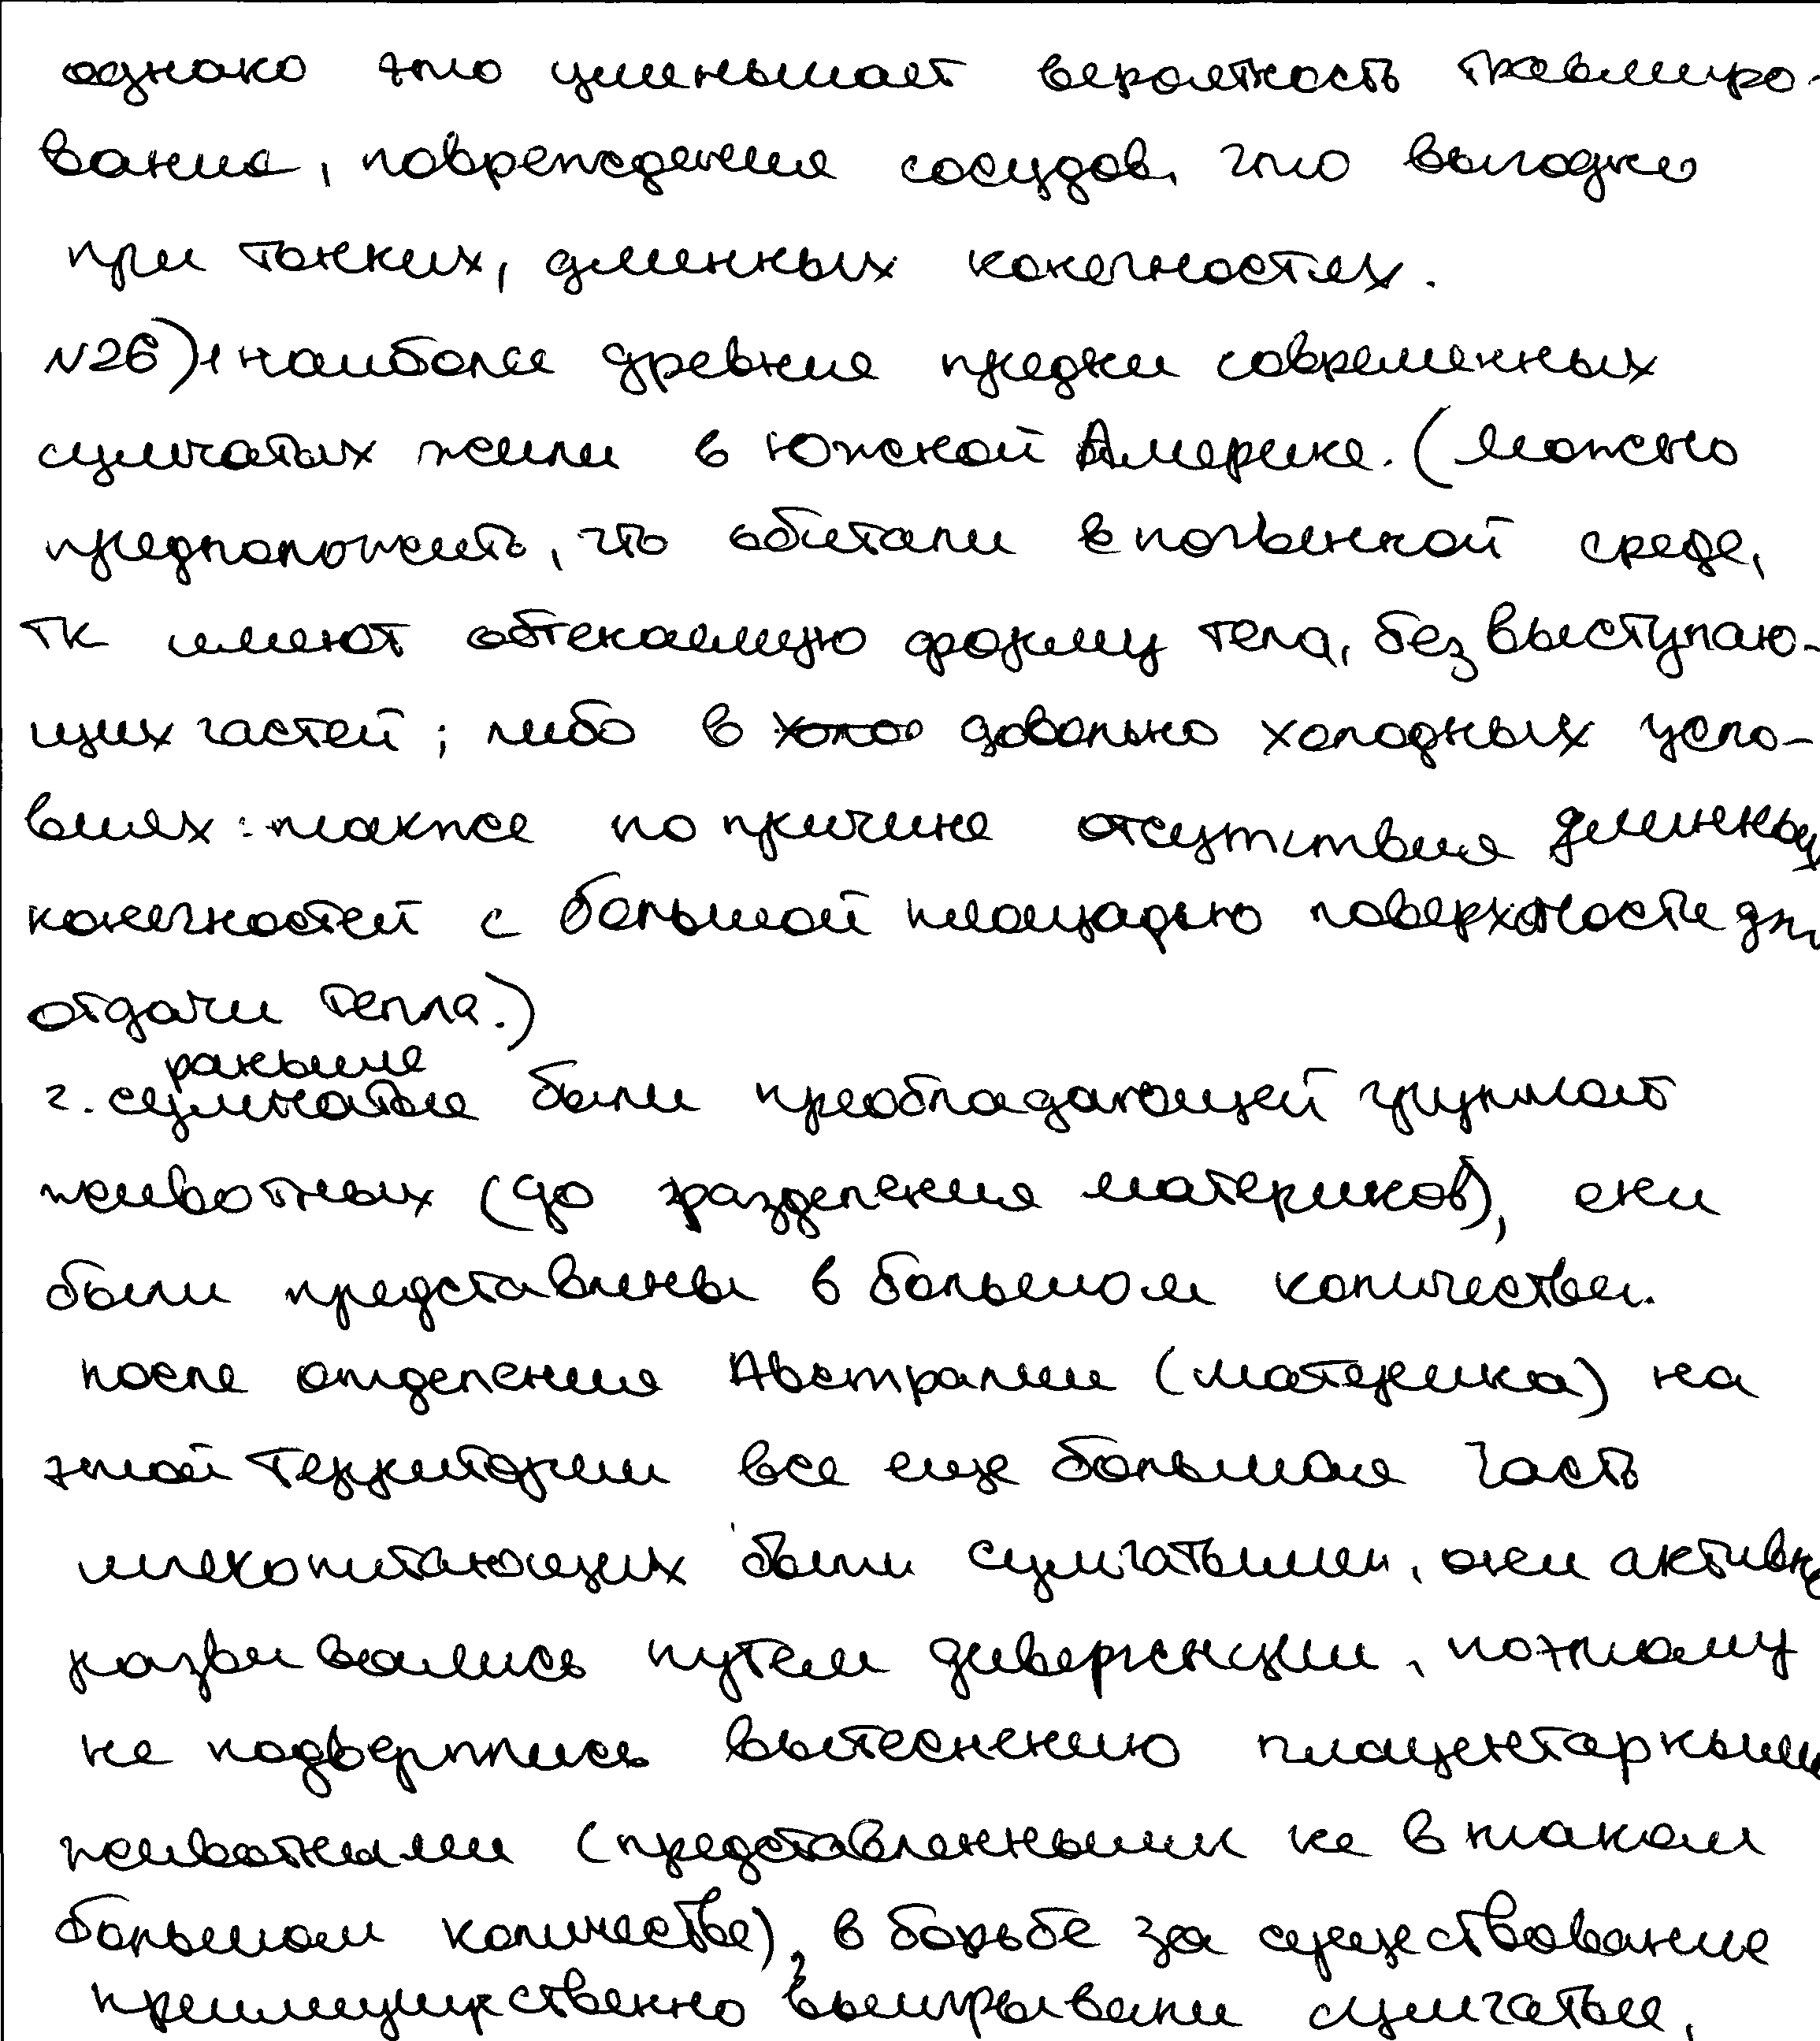 однако это уменьшает вероятность травмиро-
вания, повреждения сосудов, это выгодно
при тонких, длинных конечностях.
N26) 1 наиболее древние предки современных
сумчатых жили в Южной Америке. (можно
предположить, что обитали в почвенной среде,
тк имеют обтекаемую форму тела, без выступаю-
щих частей; либо в холо довольно холодных усло-
виях: также по причине отсутствия длинных
конечностей с большой площадью поверхности для
отдачи тепла.)
раньше
2. сумчатые были преобладающей группой
животных (до разделения материков), они
были представлены в большом количестве.
после отделения Австралии (материка) на
этой территории все еще большая часть
млекопитающих были сумчатыми, они активно
развивались путем дивергенции, поэтому
не подверглись вытеснению плацентарными
животными (представленными не в таком
большом количестве), в борьбе за существование
преимущественно выигрывали сумчатые.